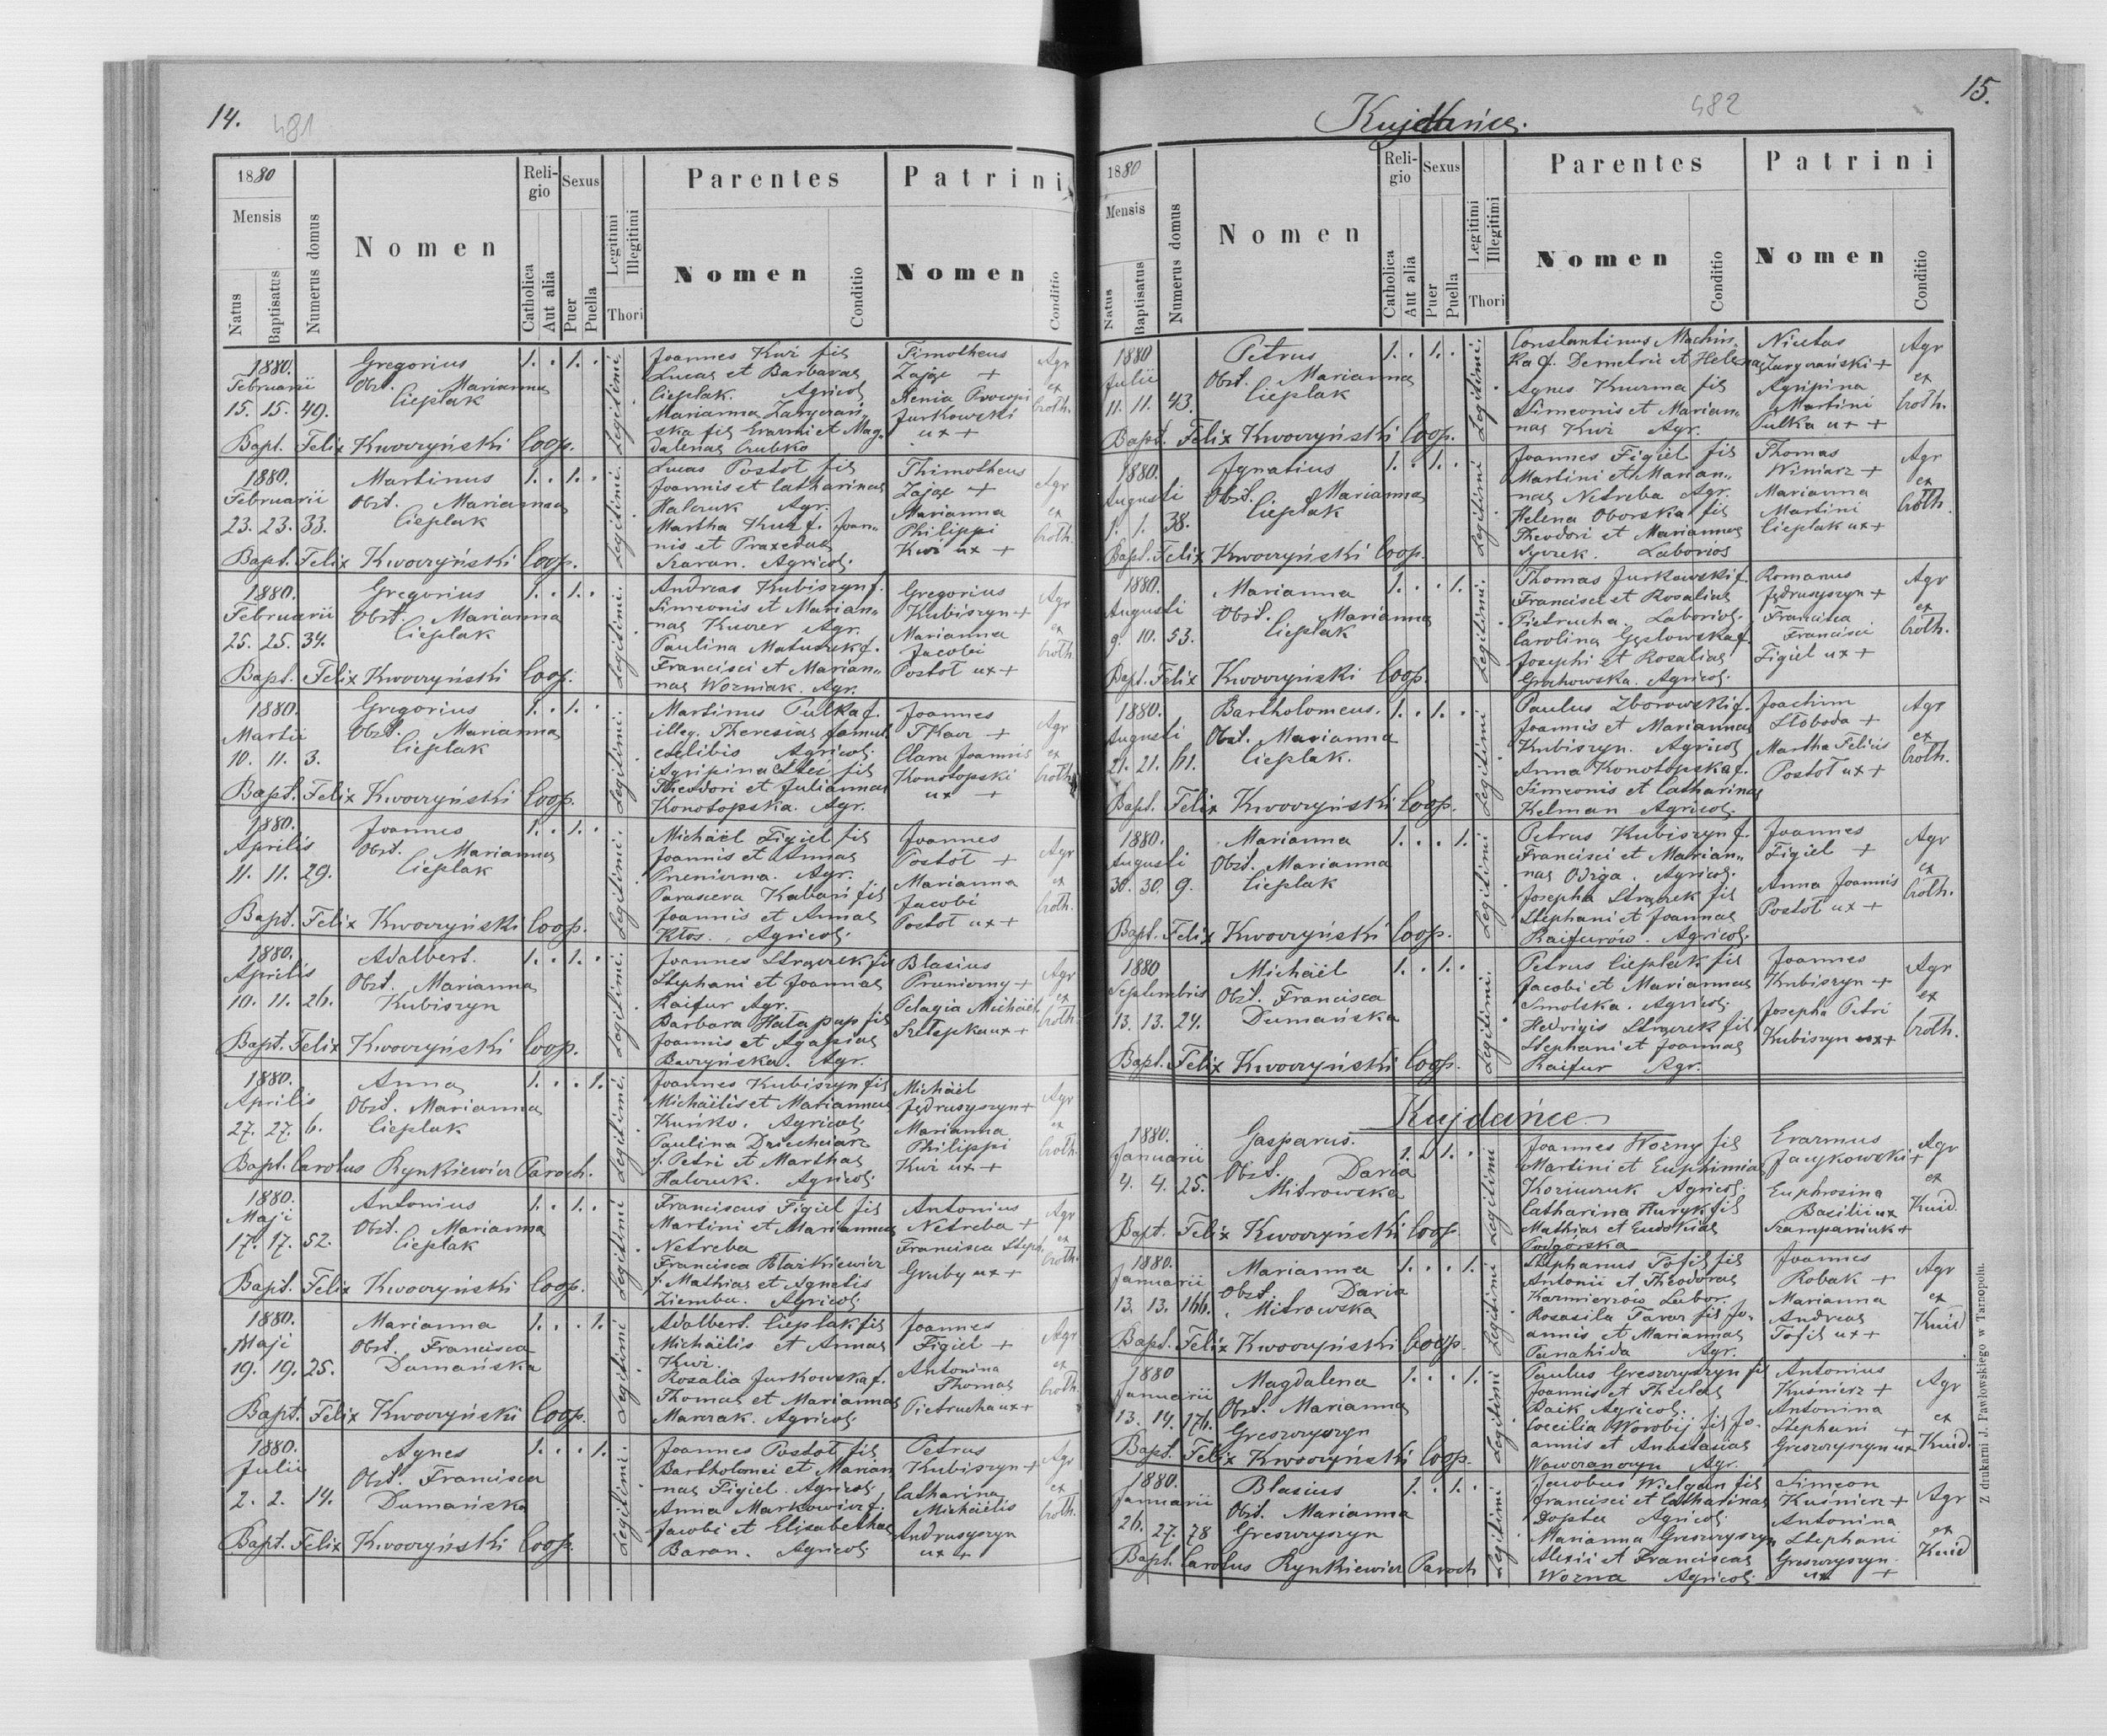 14.
481
1880
Mensis
Natus
Baptisatus
Numerus domus
Nomen
Religio
Catholica
Aut alia
Sexus
Puer
Puella
Legitimi
Illegitimi
Thori
Parentes
Nomen
Conditio
Patrini
Nomen
Conditio
1880.
Februarii
15. 15. 49.
Gregorius
Obst. Marianna
Cieplak
1. . 1. .
Legitimi.
Joannes Kwi fil
Lucas et Barbaras
Cieplak. Agricol
Marianna
ska fil Erasmi et Mag„
dalenas Czubko
Timotheus
Zając +
Xenia Procopi
Jurkowski
ux +
Agr
ex
Croth.
Bapt. Felix Kwoczyński Coop.
1880.
Februarii
23. 23. 33.
Martinus
Obst. Marianna
Cieplak
1. . 1. .
Legitimi.
Lucas Postoł fil
Joannis et Catharinas
Halczuk Agr.
Martha Kuz f. Joan„
nis et Praxedas
Agricol.
Thimotheus
Zając +
Marianna
Philippi
Kwi ux +
Agr
ex
Croth.
Bapt. Felix Kwoczyński Coop.
1880.
Februarii
25. 25. 34.
Gregorius
Obst. Marianna
Cieplak
1. . 1. .
Legitimi.
Andreas Kubiszyn f.
Simeonis et Marian„
nas Agr.
Paulina Matuszek f.
Francisci et Marian„
nas Wozniak. Agr.
Gregorius
Kubiszyn +
Marianna
Jacobi
Postoł ux +
Agr
ex
Croth.
Bapt. Felix Kwoczyński Coop.
1880.
Martii
10. 11. 3.
Gregorius
Obst. Marianna
Cieplak
1. . 1. .
Legitimi.
Martinus Pulka f.
illeg. Theresias famul.
caelibis Agricol.
Agripina fil
Theodori et Juliannas
Konotopska. Agr.
Joannes
Tkacz +
Clara Joannis
Konotopski
ux +
Agr
ex
Croth.
Bapt. Felix Kwoczyński Coop.
1880.
Aprilis
11. 11. 29.
Joannes
Obst. Marianna
Cieplak
1. . 1. .
Legitimi.
Michäel Figiel fil
Joannis et Annas
Agr.
Parascera Kaban fil
Joannis et Annas
Kłos. Agricol.
Joannes
Postoł +
Marianna
Jacobi
Postoł ux +
Agr
ex
Croth.
Bapt. Felix Kwoczyński Coop.
1880.
Aprilis
10. 11. 26.
Adalbert.
Obst. Marianna
Kubiszyn
1. . 1. .
Legitimi.
Joannes Strączek fil
Stephani et Joannas
Raifur Agr.
Barbara fil
Joannis et Agapias
Agr.
Blasius
+
Pelagia Michäel
ux +
Agr
ex
Croth.
Bapt. Felix Kwoczyński Coop.
1880.
Aprilis
27. 27. 6.
Anna
Obst. Marianna
Cieplak
1. . . 1.
Legitimi.
Joannes Kubiszyn fil
Michäelis et Mariannas
Kuśko. Agricol.
Paulina
f. Petri et Marthas
Halczuk. Agricol.
Michäel
Jędrusyszyn +
Marianna
Philippi
Kwi ux +
Agr
ex
Croth.
Bapt. Carolus Rynkiewicz Paroch.
1880.
Maji
17. 17. 52.
Antonius
Obst. Marianna
Cieplak
1. . 1. .
Legitimi
Franciscus Figiel fil
Martini et Mariannas
Netreba
Francisca Błazkiewicz
f. Mathias et Agnetis
Ziemba. Agricol.
Antonius
Netreba +
Francisca Steph.
Gruby ux +
Agr
ex
Croth.
Bapt. Felix Kwoczyński Coop.
1880.
Maji
19. 19. 25.
Marianna
Obst. Francisca
Dumańska
1. . . 1.
Legitimi
Adalbert. Cieplak fil
Michäelis et Annas
Kwi.
Rosalia Jurkowska f.
Thomas et Mariannas
Marczak. Agricol.
Joannes
Figiel +
Antonina
Thomas
Pietrucha ux +
Agr
ex
Croth.
Bapt. Felix Kwoczyński Coop.
1880.
Julii
2. 2. 14.
Agnes
Obst. Francisca
Dumańska
1. . . 1.
Legitimi.
Joannes Postoł fil
Bartholomei et Marian
nas Figiel. Agricol.
Anna Markowicz f.
Jacobi et Elisabethas
Baran. Agricol.
Petrus
Kubiszyn +
Catharina
Michäelis
Andrusyszyn
ux +
Agr
ex
Croth.
Bapt. Felix Kwoczyński Coop.
15.
482
Kujdańce.
1880
Mensis
Natus
Baptisatus
Numerus domus
Nomen
Religio
Catholica
Aut alia
Sexus
Puer
Puella
Legitimi
Illegitimi
Thori
Parentes
Nomen
Conditio
Patrini
Nomen
Conditio
1880
Julii
11. 11. 43.
Petrus
Obst. Marianna
Cieplak
1. . 1. .
Legitimi.
Constantinus Machin„
ka f. Demetrii et Helenas
Agnes fil
Simeonis et Marian„
nas Kwi Agr.
Nicetas
+
Agripina
Martini
Pulka ux +
Agr
ex
Croth.
Bapt. Felix Kwoczyński Coop.
1880.
Augusti
1. 1. 38.
Ignatius
Obst. Marianna
Cieplak
1. . 1. .
Legitimi
Joannes Figiel fil
Martini et Marian„
nas Netreba Agr.
Helena Oborska fil
Theodori et Mariannas
Laborios
Thomas
Winiarz +
Marianna
Martini
Cieplak ux +
Agr
ex
Croth.
Bapt. Felix Kwoczyński Coop.
1880.
Augusti
9. 10. 53.
Marianna
Obst. Marianna
Cieplak
1. . . 1.
Legitimi.
Thomas Jurkowski f.
Francisci et Rosalias
Pietrucha. Laborios.
Carolina f.
Josephi et Rosalias
Grochowska. Agricol.
Romanus
Jędrusyszyn +
Francisca
Francisci
Figiel ux +
Agr
ex
Croth.
Bapt. Felix Kwoczyński Coop.
1880.
Augusti
21. 21. 61.
Bartholomeus.
Obst. Marianna
Cieplak.
1. . 1. .
Legitimi
Paulus Zborowski f.
Joannis et Mariannas
Kubiszyn. Agricol
Anna Konotopska f.
Simeonis et Catharinas
Kelman Agricol.
Joachim
Słoboda +
Martha Felicis
Postoł ux +
Agr
ex
Croth.
Bapt. Felix Kwoczyński Coop.
1880.
Augusti
30. 30. 9.
Marianna
Obst. Marianna
Cieplak
1. . . 1.
Legitimi
Petrus Kubiszyn f.
Francisci et Marian„
nas Ożga. Agricol.
Josepha Strączek fil
Stephani et Joannas
Raifurów. Agricol.
Joannes
Figiel +
Anna Joannis
Postoł ux +
Agr
ex
Croth.
Bapt. Felix Kwoczyński Coop.
1880
Septembris
13. 13. 24.
Michäel
Obst. Francisca
Dumańska
1. . 1. .
Legitimi.
Petrus Cieplak fil
Jacobi et Mariannas
Smolska. Agricol.
Hedvigis Strączek fil
Stephani et Joannas
Raifur Agr.
Joannes
Kubiszyn +
Josepha Petri
Kubiszyn ux +
Agr
ex
Croth.
Bapt. Felix Kwoczyński Coop.
Kujdańce
1880.
Januarii
4. 4. 25.
Gasparus.
Obst. Daria
Mitrowska
1. . 1. .
Legitimi
Joannes Wozny fil
Martini et Euphimias
Agricol.
Catharina Huryk fil
Mathias et Eudokias
Podgórska
Erazmus
Janykowski +
Euphrosina
Basilii ux
Szampaniuk +
Agr
ex
Kuid.
Bapt. Felix Kwoczyński Coop
1880.
Januarii
13. 13. 166.
Marianna
Obst. Daria
Mitrowska
1. . . 1.
Legitimi
Stephanus Tofil fil
Antonii et Theodoras
Kazmierzów Labor.
Rosalia fil Jo„
annis et Mariannas
Panahida Agr.
Joannes
Robak +
Marianna
Andreas
Tofil ux +
Agr
ex
Kuid
Bapt. Felix Kwoczyński Coop.
1880
Januarii
13. 14. 176.
Magdalena
Obst. Marianna
Greszczyszyn
1. . . 1.
Legitimi
Paulus Greszczyszyn fil
Joannis et Theclas
Baik Agricol.
Coecilia Worobij fil Jo„
annis et Anastasias
Agr.
Antonius
Kuśnierz +
Antonina
Stephani +
Greszczyszyn ux
Agr
ex
Kuid.
Bapt. Felix Kwoczyński Coop.
1880.
Januarii
26. 27. 78
Blasius
Obst. Marianna
Greszczyszyn
1. . 1. .
Legitimi
Jacobus Wielgan fil
Francisci et Catharinas
Dopta Agricol.
Marianna Greszczyszyn
Alexii et Franciscas
Wozna Agricol.
Simeon
Kuśnierz +
Antonina
Stephani
Greszczyszyn
ux +
Agr
ex
Kuid
Bapt. Carolus Rynkiewicz Paroch
Z drukarni J. Pawłowskiego w Tarnopolu.